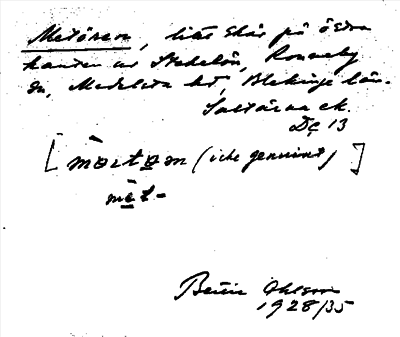 Metören, litet skär på östra
kanten av Stedelön, Ronneby
sn, Medelsta hd, Blekinge län.
Saltärna ek.
Dç 13
(icke genuint)
mèt-
Bertil Ohlson
1928/35